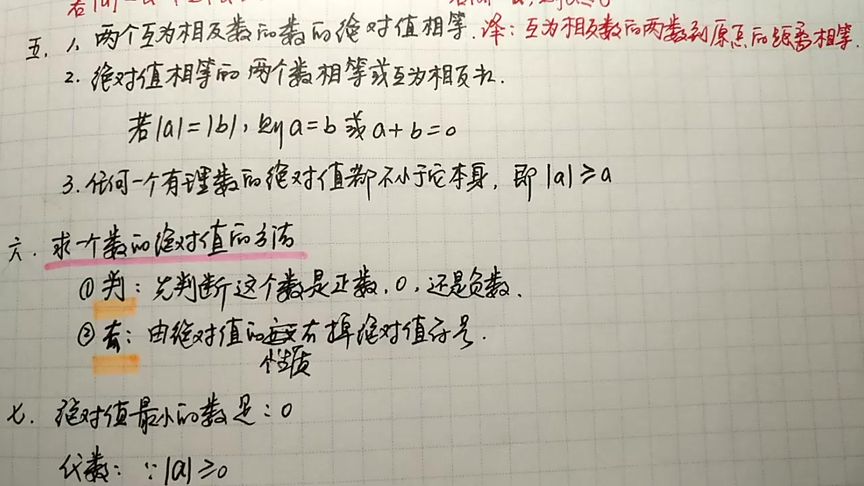 五. 1. 两个互为相反数的数的绝对值相等. 译: 互为相反数的两数到原点的距离相等.
2. 绝对值相等的两个数相等或互为相反数.
若|a|=|b|, 则a=b或a+b=0
3. 任何一个有理数的绝对值都不小于它本身, 即|a|≥a
六. 求一个数的绝对值的方法
① 判: 先判断这个数是正数, 0, 还是负数.
② 去: 由绝对值的去掉绝对值符号.
性质
七. 绝对值最小的数是: 0
代数: ∵|a|≥0